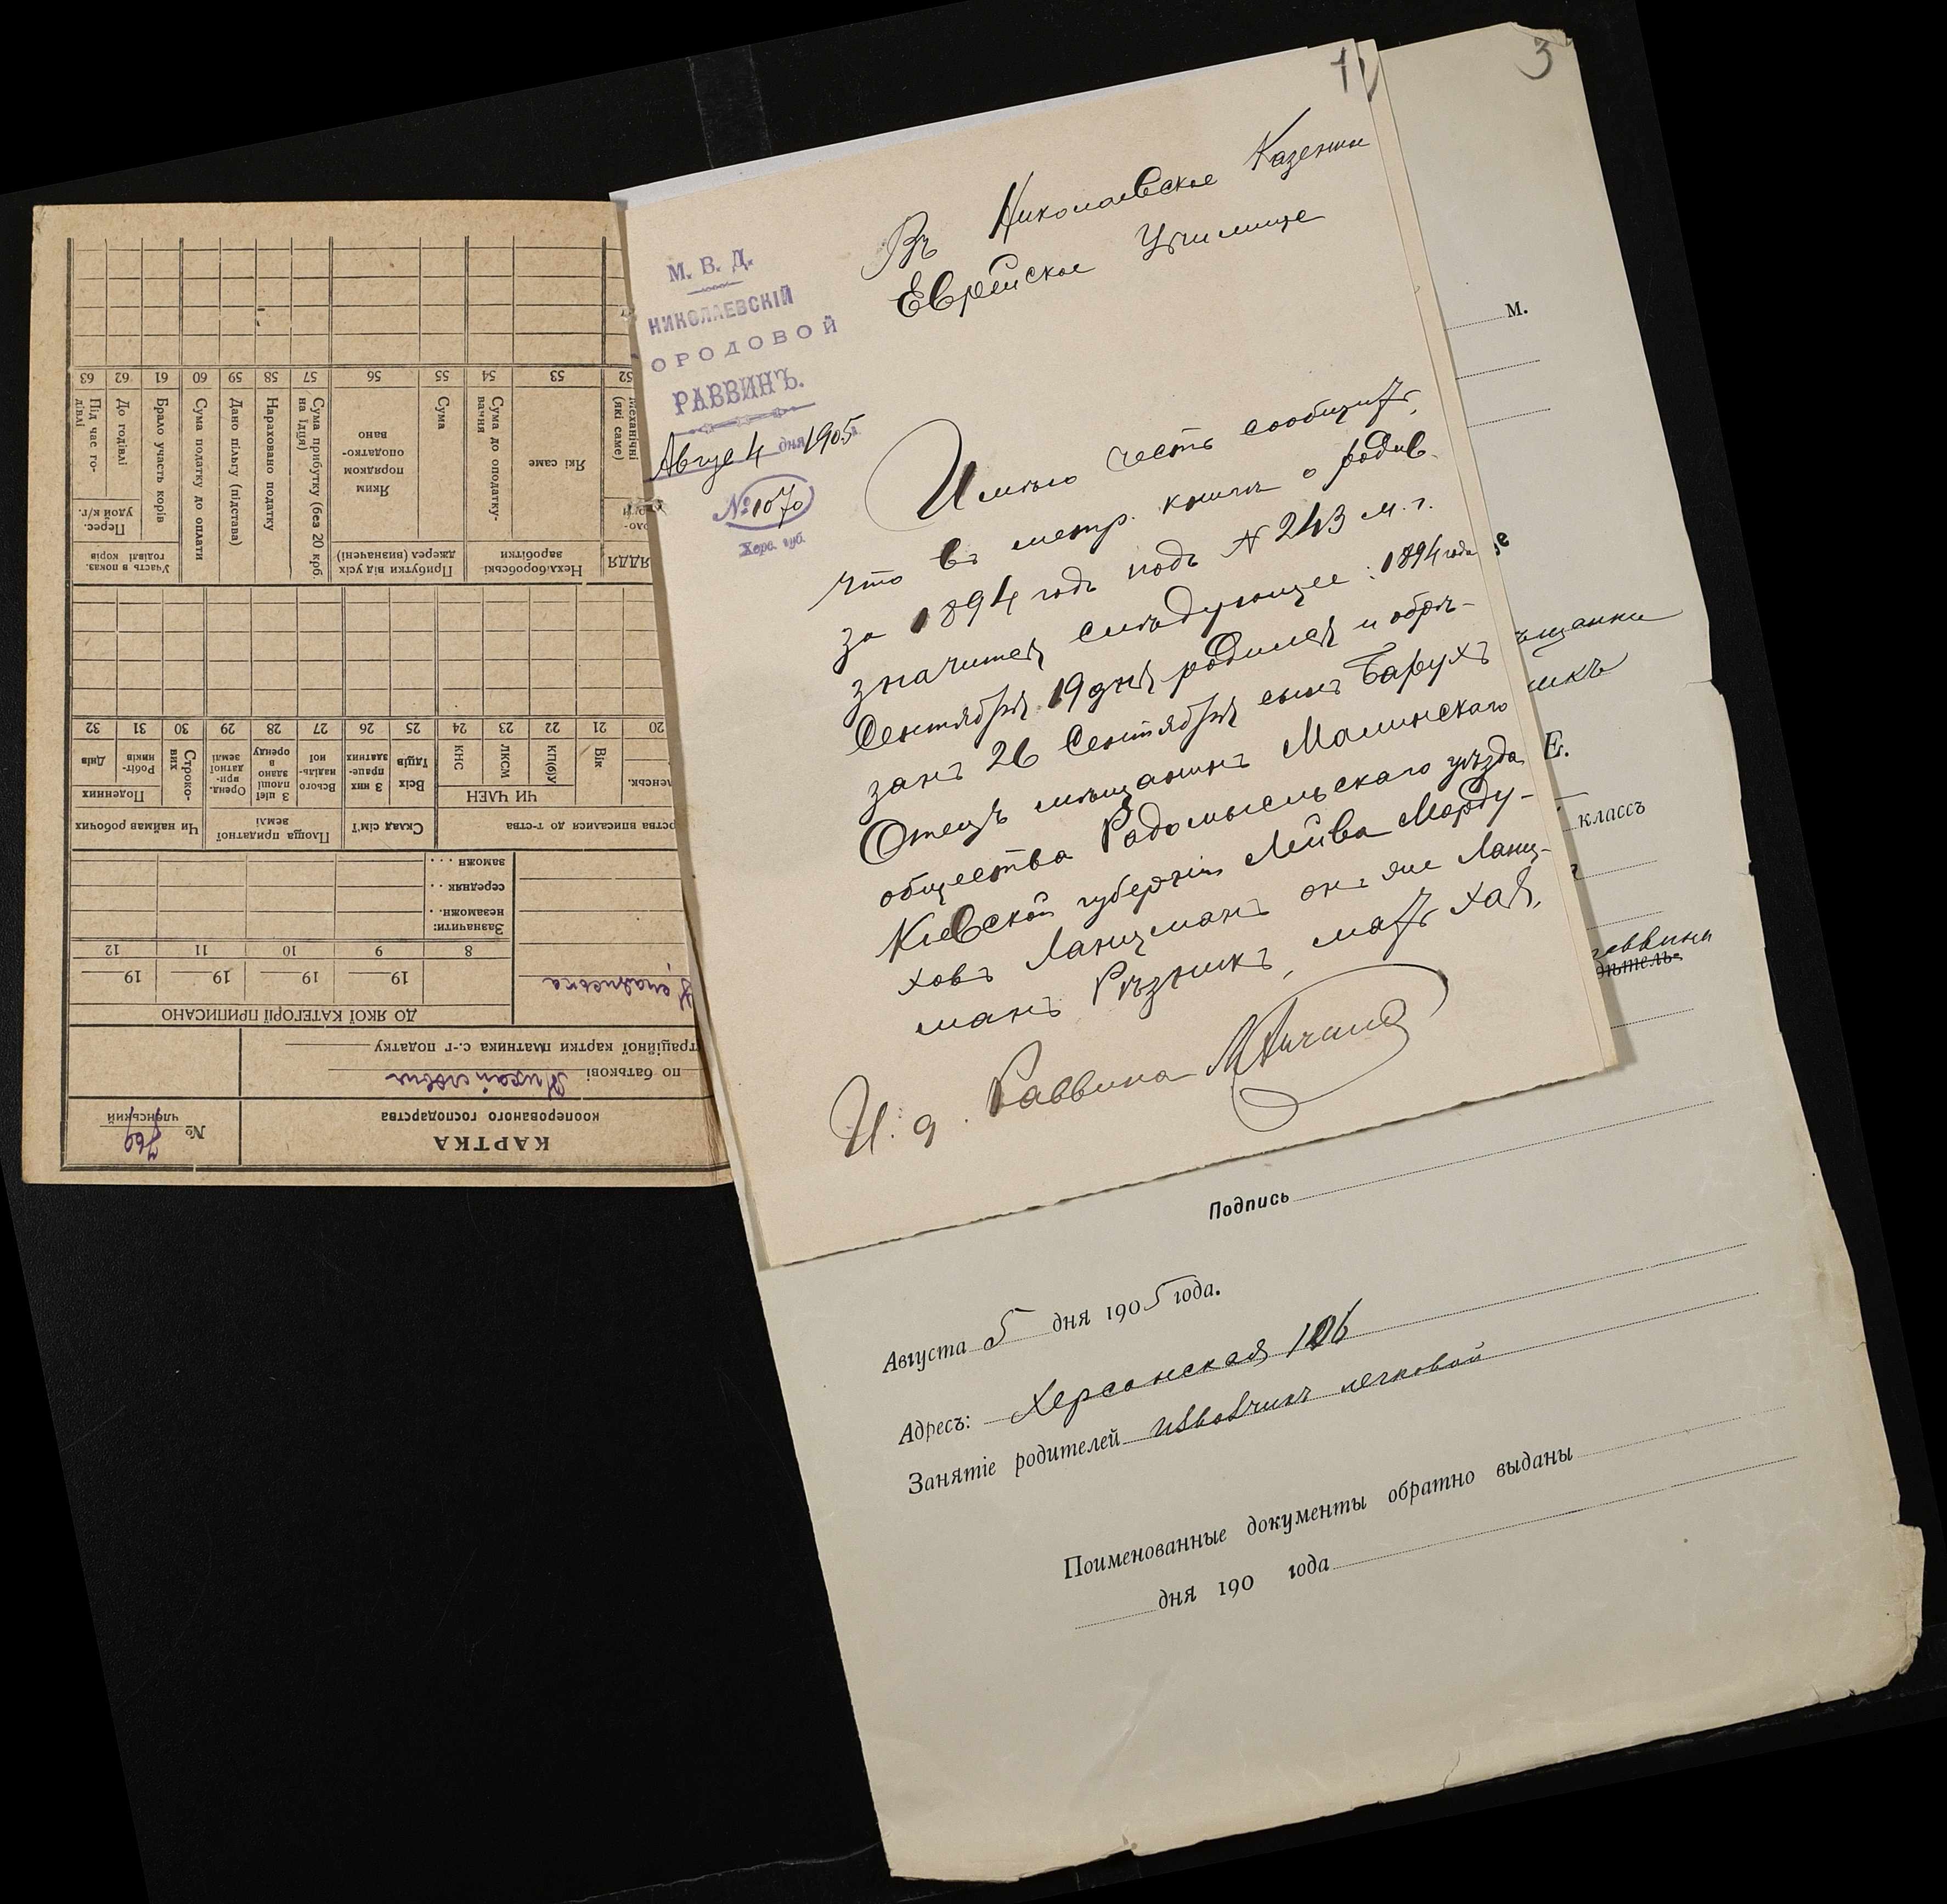 1
3
М. В. Д.
НИКОЛАЕВСКІЙ
ОРОДОВОЙ
РАВВИНЪ.
Авгус 4 дня 1905
№ 1070
Херс. губ.
Въ Николаевское Казенни
Еврейское Училище
Имѣю честь сообщить,
что въ метр. книгѣ о родив.
за 1894 годъ подъ № 243 м. г.
значится слѣдующее: 1894 года
Сентября 19 дня родился и обрѣ-
занъ 26 Сентября сынъ Барухъ
Отецъ мѣщанинъ Малинскаго
общества Радомысльскаго уѣзда
Кіевской губерніи Лейва Морду-
ховъ Ланцманъ онъ же Ланц-
манъ Рѣзникъ, мать Хая,
И. д. Раввина
м.
ѣщанки
икъ
Е.
классъ
раввина
Подпись
Августа 5 дня 1905 года.
Адресъ: Херсонская 106
Занятіе родителей извозчикъ легковой
Поименованные документы обратно выданы
дня 190 года
КАРТКА
кооперованого господарства
№ 769
членський
по батькові Михайлович
траційної картки платника с.-г податку
ДО ЯКОЇ КАТЕГОРІЇ ПРИПИСАНО
19 19 19 19
8 9 10 11 12
Зазначити:
незаможн. .
середняк . .
заможн . . .
рства вписалися до т-ва
Склад сім'ї
Площа придатної землі
Чи наймав робочих
енськ.
Вік
ЧИ ЧЛЕН
КП(б)У
ЛКСМ
КНС
Всіх їдців
З них праце-здатних
Всього наділь-ної
З цієї площі здано в оренду
Оренд. при-датної землі
Строко-вих
Поденних
Робіт-ників
Днів
20 21 22 23 24 25 26 27 28 29 30 31 32
ДДЯ
Нехліборобські заробітки
Прибутки від усіх джерел (визначені)
Участь в показ. годівлі корів
Механічні (які саме)
Які саме
Сума до оподатку-вання
Сума
Яким порядком оподатко-вано
Сума прибутку (без 20 крб на їдця)
Нараховано податку
Дано пільгу (підстава)
Сума податку до оплати
Брало участь корів
Перес. удой к/г.
До годівлі
Під час го-дівлі
52 53 54 55 56 57 58 59 60 61 62 63